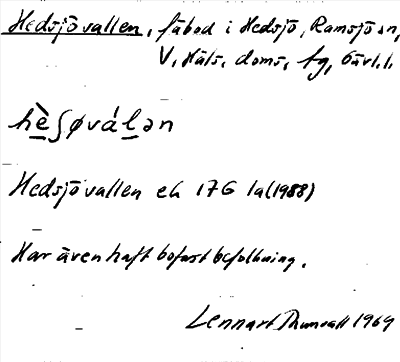 Hedsjövallen, fäbod i Hedsjö, Ramsjö sn,
V. Häls. doms. fg, Gävl. l.
hèʃøválən
Hedsjövallen ek 17G 1a (1988)
Har även haft bofast befolkning.
Lennart 1969